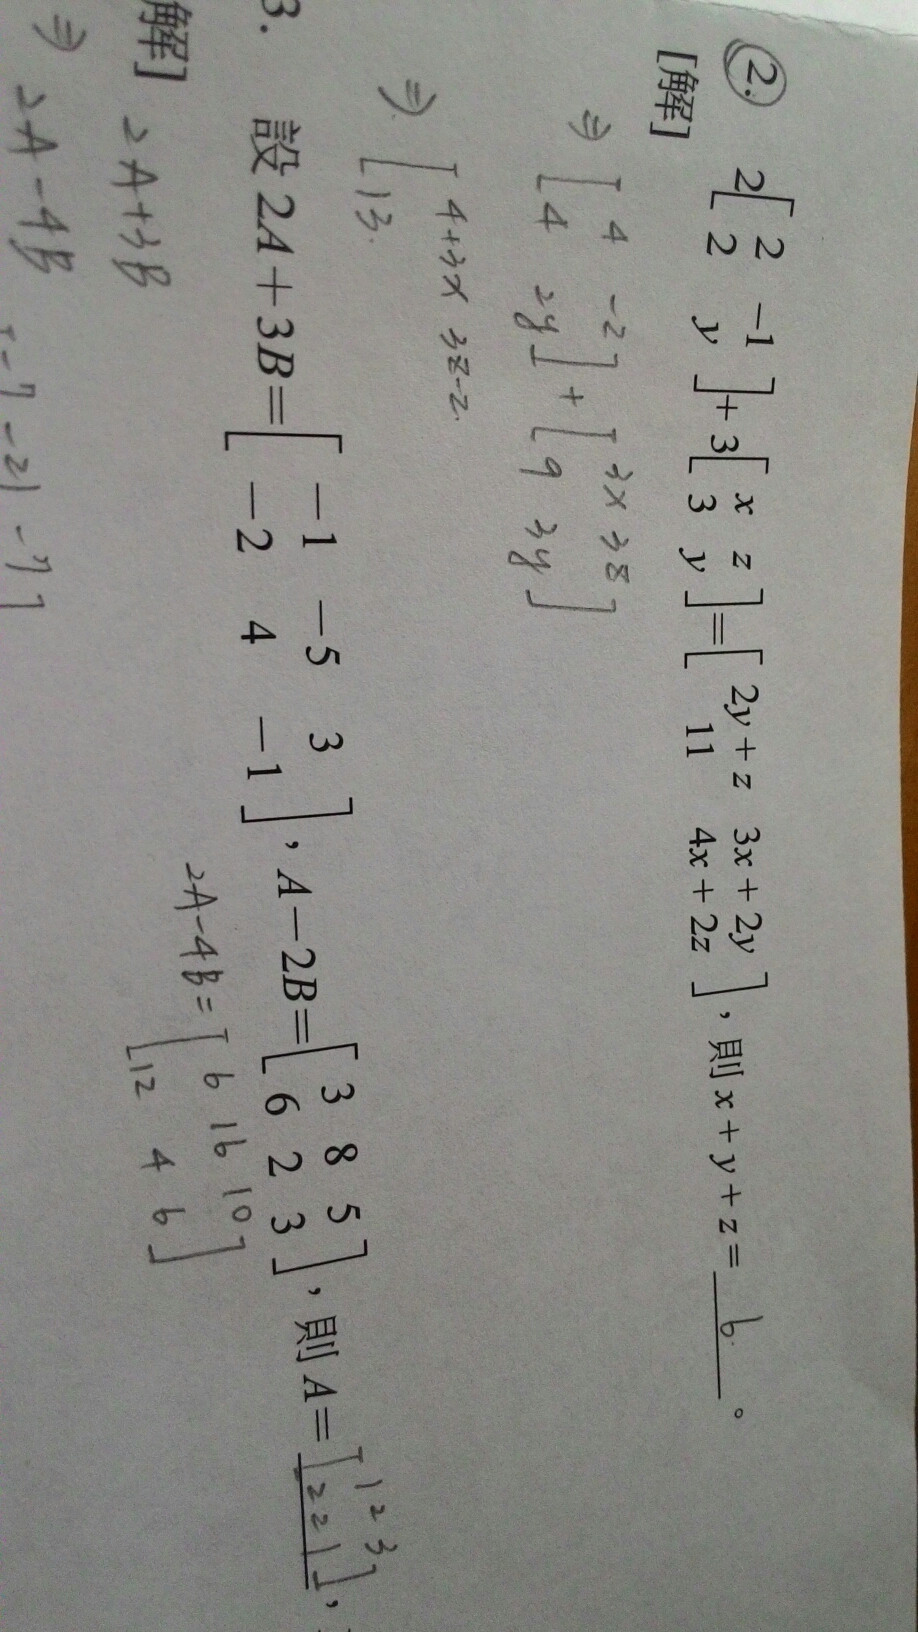 2. 2[ 2 -1 ; 2 y ] + 3[ x z ; 3 y ] = [ 2y+z 3x+2y ; 11 4x+2z ] , 則 x+y+z= 6 。
[解]
⇒ [ 4 -2 ; 4 2y ] + [ 3x 3z ; 9 3y ]
⇒ [ 4+3x 3z-2 ; 13
3. 設 2A+3B= [ -1 -5 3 ; -2 4 -1 ] , A-2B= [ 3 8 5 ; 6 2 3 ] , 則 A= [ 1 2 3 ; 2 2 1 ] ,
解] 2A+3B
2A-4B= [ 6 16 10 ; 12 4 6 ]
⇒ 2A-4B
[ -7 -21 -7 ]